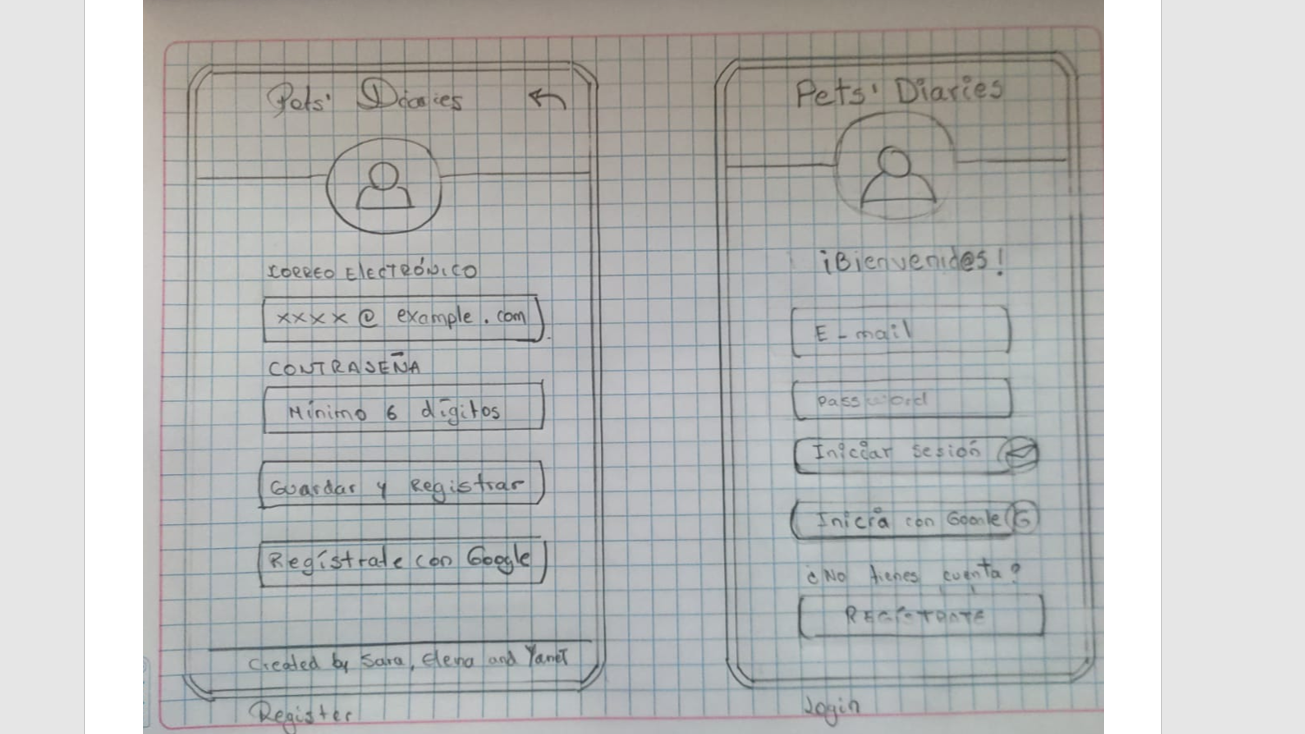 Pets' Diaries
CORREO ElectRÓNICO
xxxx@example.com
CONTRASEÑA
Mínimo 6 dígitos
Guardar y Registrar
Regístrate con Google
Created by Sara, Elena and Yanet
Register
Pets' Diaries
¡Bienvenid@s!
E-mail
password
Iniciar sesión
Inicia con Google G
¿No tienes cuenta?
REGÍSTRATE
Login